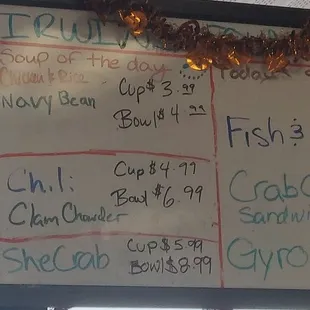 IRWIN
Soup of the day
Chicken & Rice
Navy Bean
Cup $3.99
Bowl $4.99
Chili
Clam Chowder
Cup $4.99
Bowl $6.99
SheCrab
Cup $5.99
Bowl $8.99
Today's
Fish &
Crab C
Sandwi
Gyro